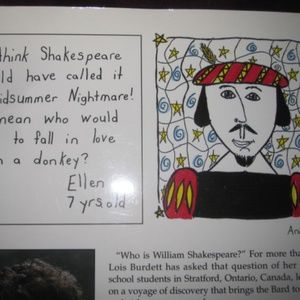 think Shakespeare
ld have called it
idsummer Nightmare!
ean who would
to fall in love
a donkey?
Ellen
7 yrs.old
An
"Who is William Shakespeare?" For more tha
Lois Burdett has asked that question of her
school students in Stratford, Ontario, Canada, le
on a voyage of discovery that brings the Bard to